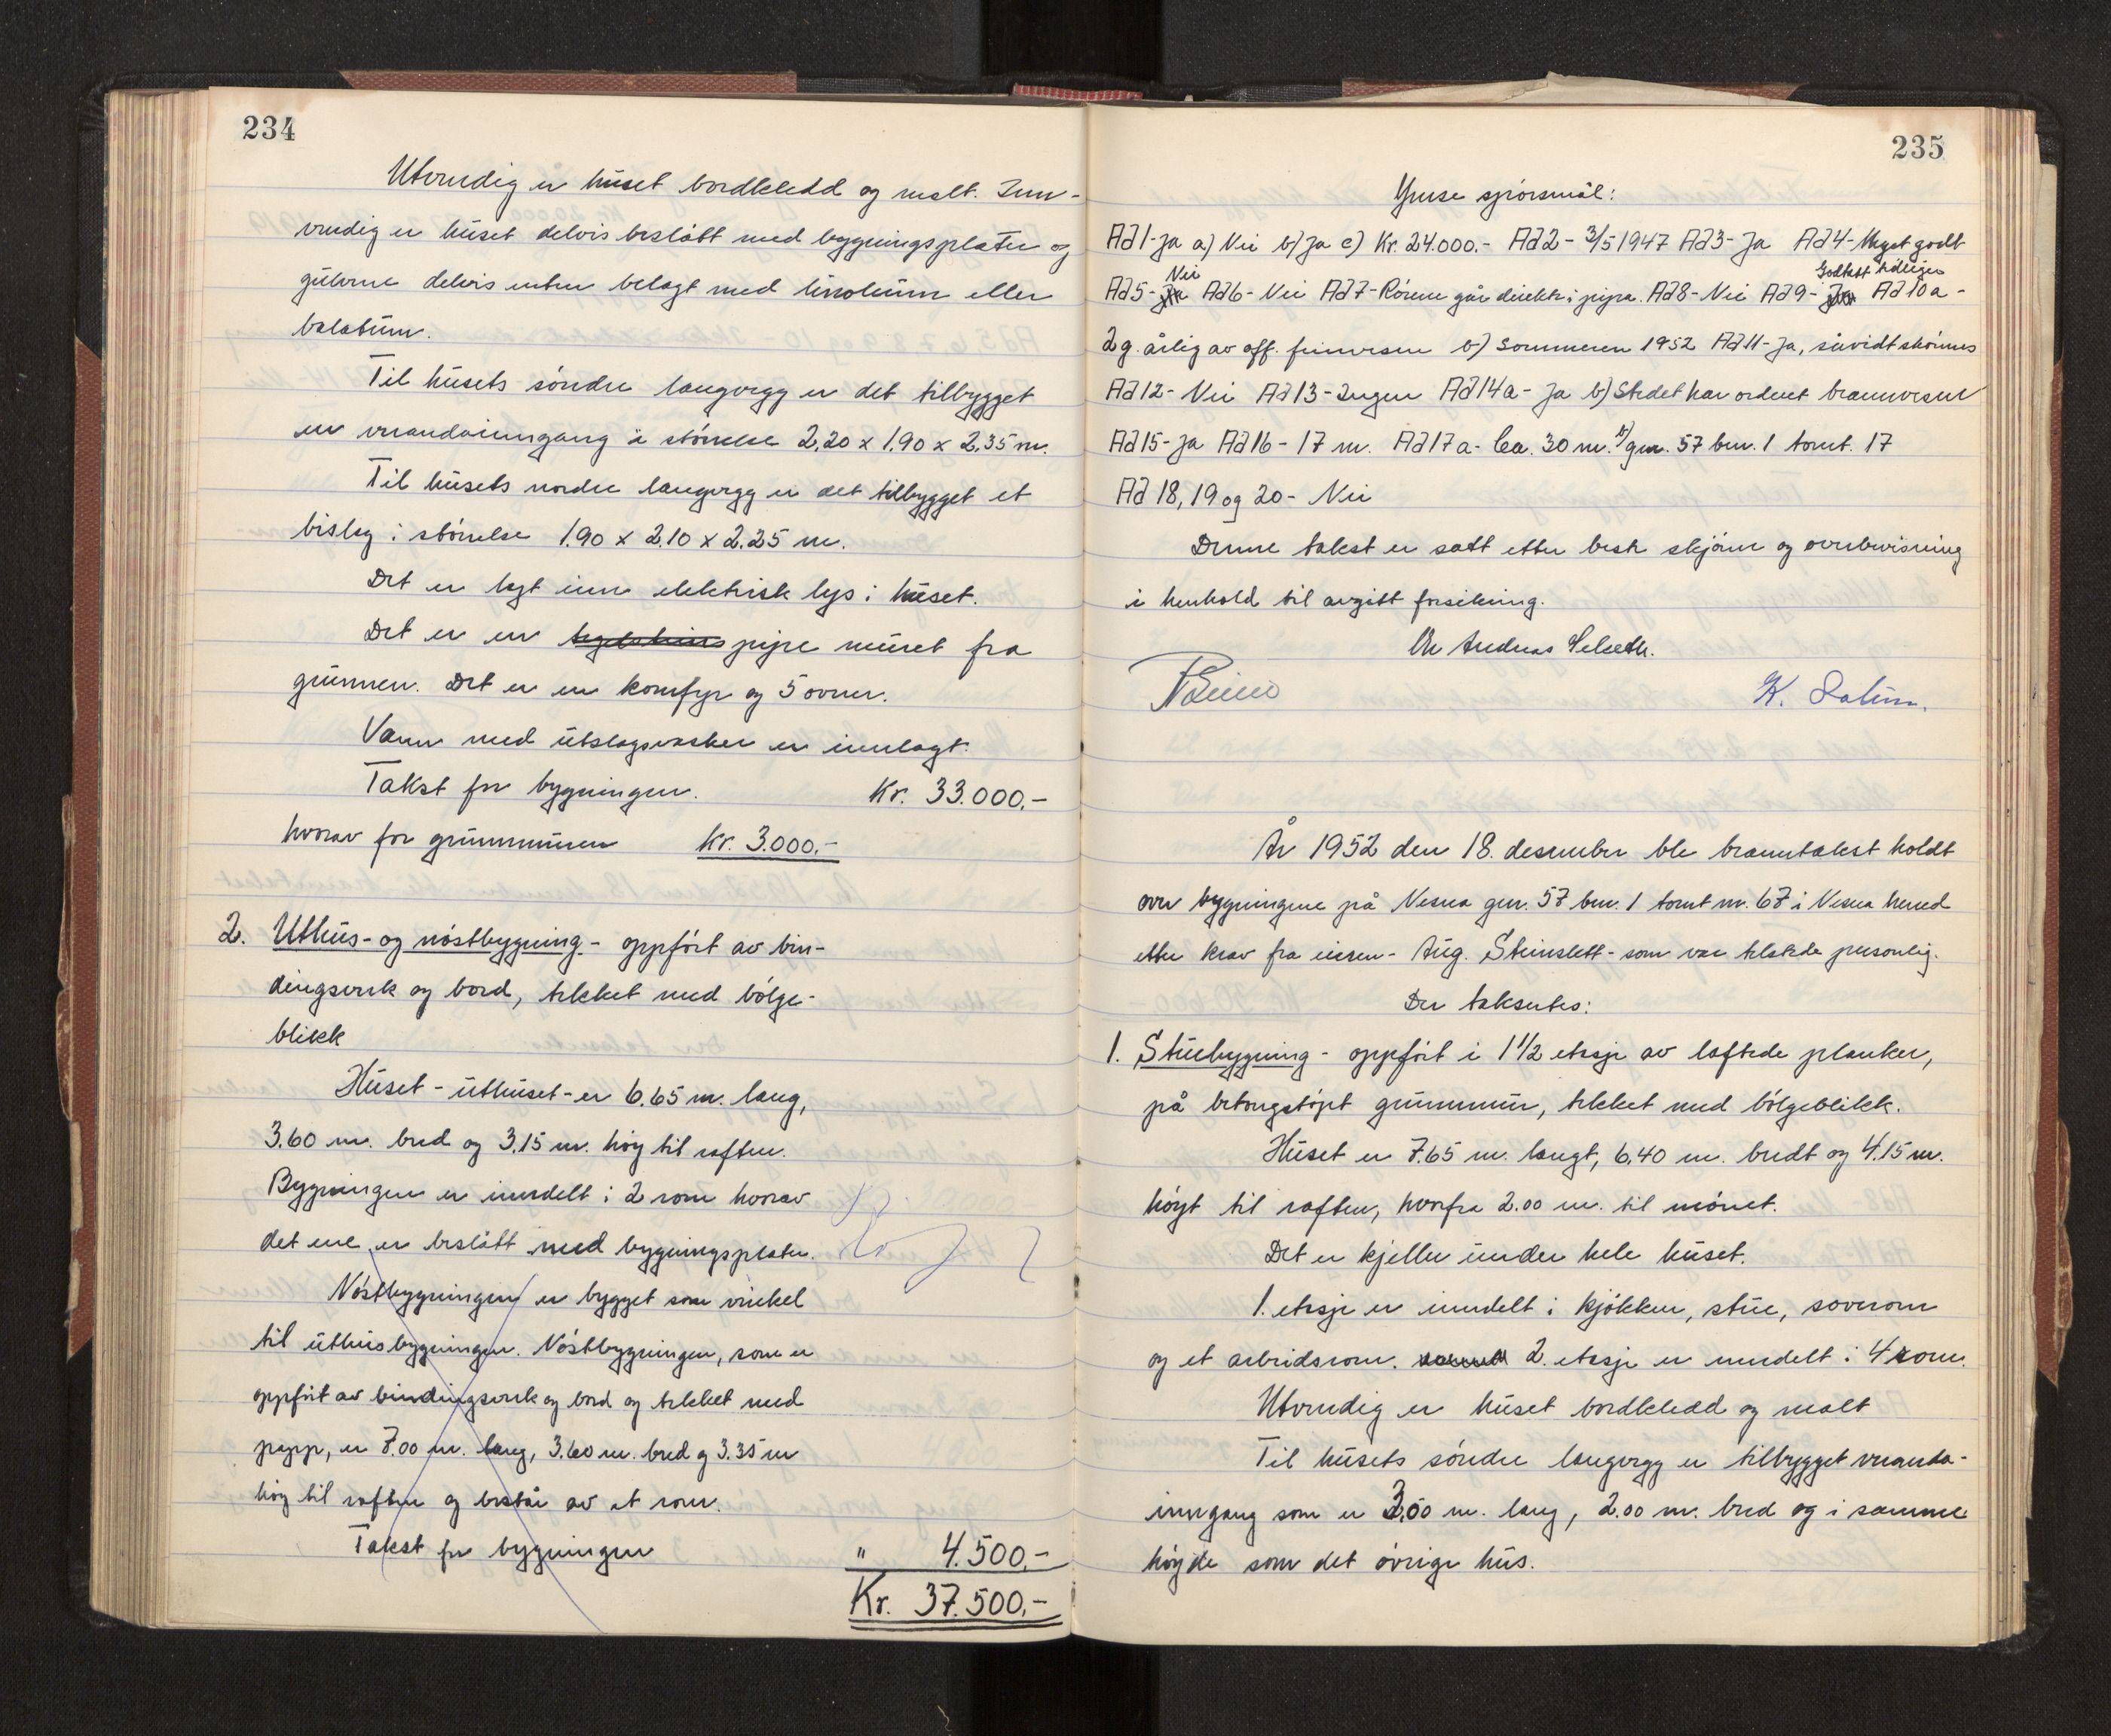 234
Utvendig er huset bordkledd og malt. Inn-
vendig er huset delvis beslått med bygningsplater og
gulvene delvis enten belagt med linoleum eller
balatum.
Til husets søndre langvegg er det tilbygget
en verandainngang i størrelse 2,20 x 1.90 x 2,35 m.
Til husets nordre langvegg er det tilbygget et
bislag i størrelse 1.90 x 2.10 x 2.25 m.
Det er lagt inn elektrisk lys i huset.
Det er en pipe muret fra
grunnen. Det er en komfyr og 5 ovner.
Vann med utslagsvasker er innlagt.
Takst for bygningen. Kr. 33.000,-
hvorav for grunnmuren kr. 3.000.-
2. Uthus- og nøstbygning - oppført av bin-
dingsverk og bord, tekket med bølge-
blikk
Huset - uthuset - er 6.65 m. lang,
3.60 m. bred og 3.15 m. høy til raften.
Bygningen er inndelt i 2 rom hvorav
det ene er beslått med bygningsplater.
Nøstbygningen er bygget som vinkel
til uthusbygningen. Nøstbygningen, som er
oppført av bindingsverk og bord og tekket med
papp, er 7.00 m. lang, 3.60 m. bred og 3.35 m
høy til raften og består av et rom.
Takst for bygningen " 4.500,-
Kr. 37.500,-
235
Ymse spørsmål:
Ad 1 - Ja a) Nei b) Ja c) Kr. 24.000.- Ad 2 - 3/5 1947 Ad 3 - Ja Ad 4 - Meget godt
Nei Godtatt tidligere
Ad 5 - Ja Ad 6 - Nei Ad 7 - Rørene går direkte i pipa. Ad 8 - Nei Ad 9 - Ja Ad 10 a -
2 g. årlig av off. feiervesen b) Sommeren 1952 Ad 11 - Ja, såvidt skønnes
Ad 12 - Nei Ad 13 - Ingen Ad 14 a - Ja b) Stedet har ordnet brannvesen
Ad 15 - Ja Ad 16 - 17 m. Ad 17 a - Ca. 30 m. b) gnr. 57 bnr. 1 tomt. 17
Ad 18, 19 og 20 - Nei
Denne takst er satt etter beste skjønn og overbevisning
i henhold til avgitt forsikring.
Chr Andreas Selseth.
K. Solum.
År 1952 den 18. desember ble branntakst holdt
over bygningene på Nesna gnr. 57 bnr. 1 tomt nr. 67 i Nesna herred
etter krav fra eieren - Aug. Steinslett - som var tilstede personlig.
Der takseres:
1. Stuebygning - oppført i 1 1/2 etasje av laftede planker,
på betongstøpt grunnmur, tekket med bølgeblikk.
Huset er 7.65 m. langt, 6.40 m. bredt og 4.15 m.
høyt til raften, hvorfra 2.00 m. til mønet.
Det er kjeller under hele huset.
1. etasje er inndelt i kjøkken, stue, soverom
og et arbeidsrom. 2. etasje er inndelt i 4 rom.
Utvendig er huset bordkledd og malt
Til husets søndre langvegg er tilbygget veranda-
inngang som er 3,50 m. lang, 2.00 m. bred og i samme
høyde som det øvrige hus.